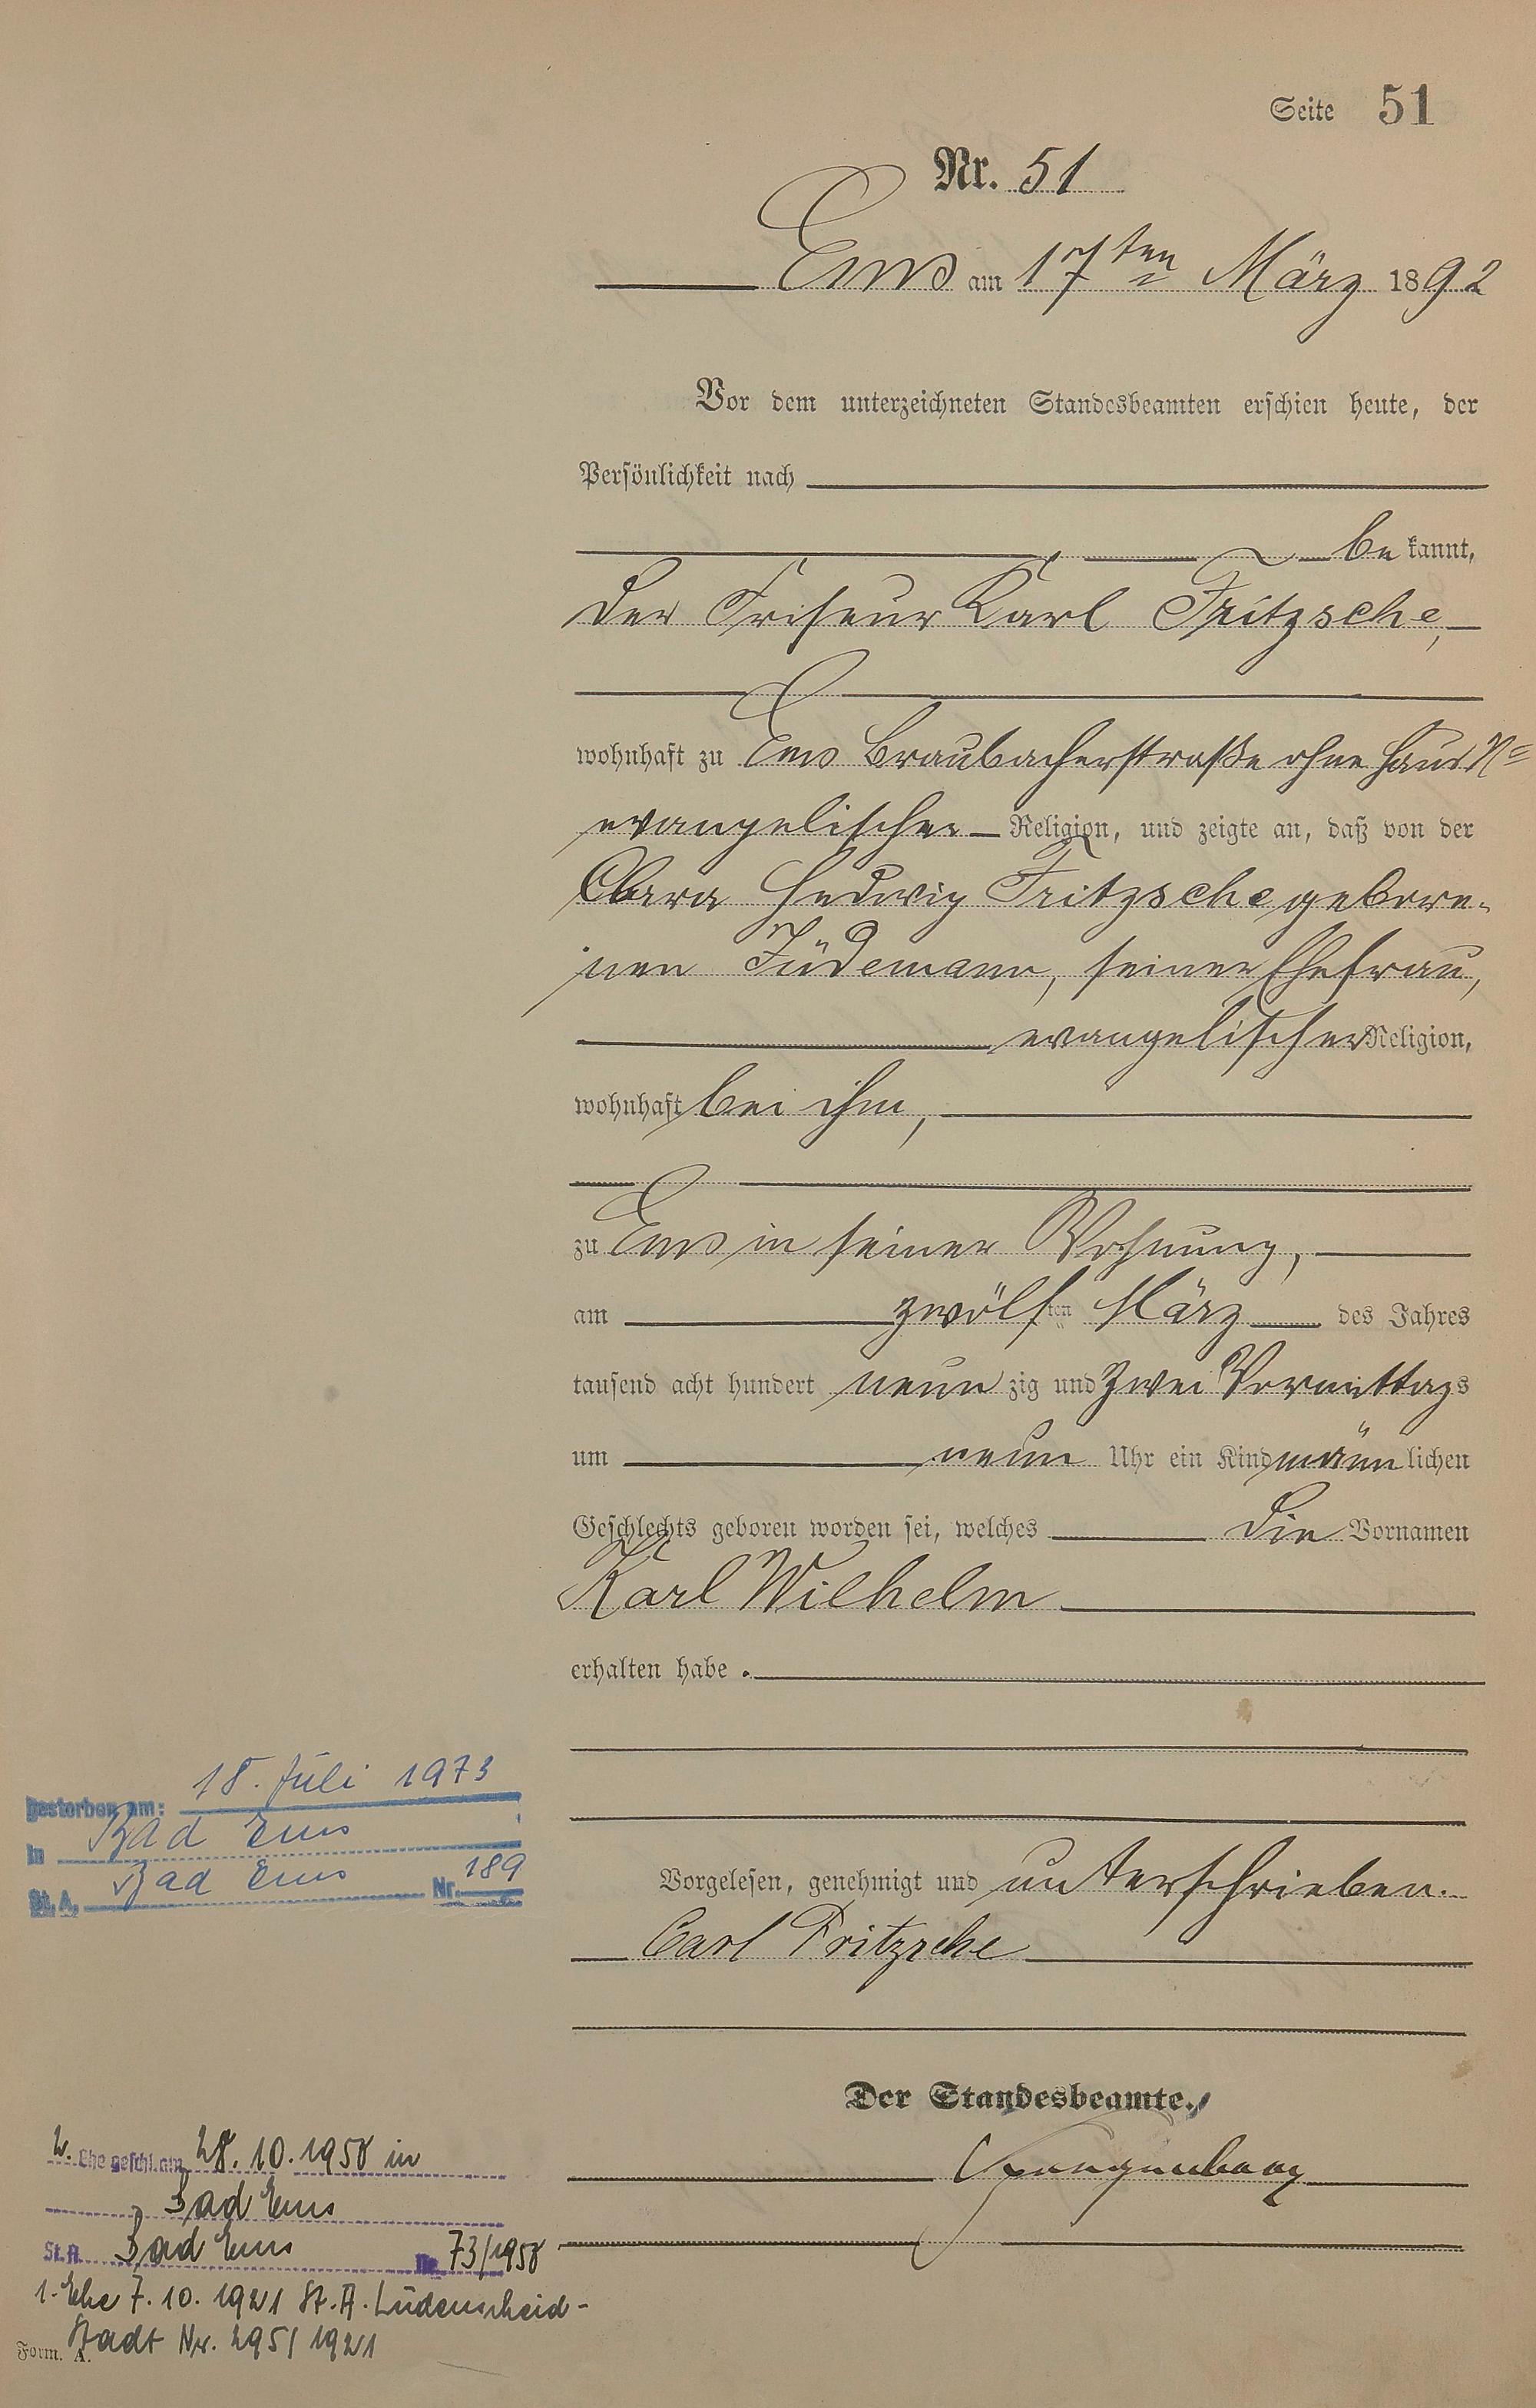 Seite 51
Nr. 51
Ems am 17ten März 1892
Vor dem unterzeichneten Standesbeamten erschien heute, der
Persönlichkeit nach
be kannt,
der Friseur Karl Fritzsche,
wohnhaft zu Ems Braubacherstraße ohne Haus No
evangelischer Religion, und zeigte an, daß von der
Clara Hedwig Fritzsche gebore-
nen Jüdemann, seiner Ehefrau,
evangelischer Religion,
wohnhaft bei ihm,
zu Ems in seiner Wohnung,
am zwölf ten März des Jahres
tausend acht hundert neun zig und zwei Vormittags
um neun Uhr ein Kind männlichen
Geschlechts geboren worden sei, welches die Vornamen
Karl Wilhelm
erhalten habe.
gestorben am: 18. Juli 1973
in Bad Ems
St. A. Bad Ems Nr. 189
Vorgelesen, genehmigt und unterschrieben.
Carl Fritzsche
Der Standesbeamte.
2. Ehe geschl. am 28. 10. 1958 in
Bad Ems
St. A. Bad Ems Nr. 73/1958
1. Ehe 7. 10. 1921 St. A. Lüdenscheid-
Stadt Nr. 295/1921
Form. A.